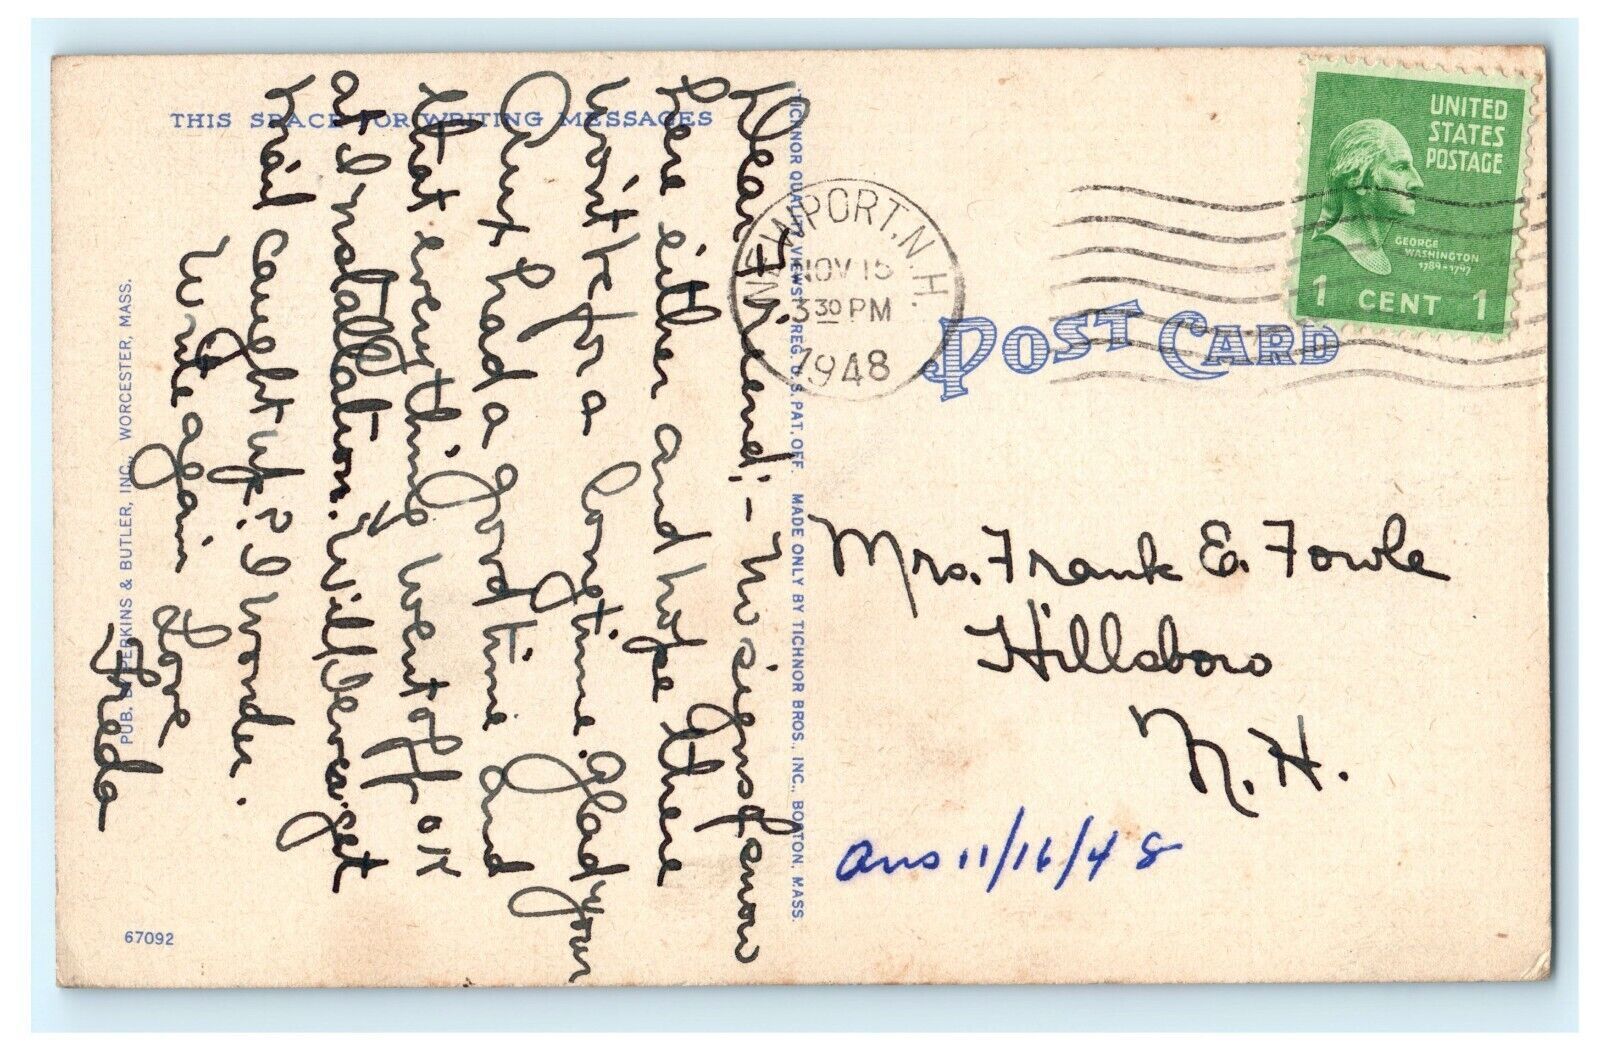 THIS SPACE FOR WRITING MESSAGES
Dear Friend:- No signs of snow
here either and hope there
won't be for a long time. Glad your
Aunt had a good time and
that everything went off ok
at Installation. Will I ever get
mail caught up? I wonder.
Write again
Love
Freda
PUB. BY PERKINS & BUTLER, INC., WORCESTER, MASS.
67092
"TICHNOR QUALITY VIEWS," REG. U. S. PAT. OFF. MADE ONLY BY TICHNOR BROS., INC., BOSTON, MASS.
NEWPORT, N.H.
NOV 15
3 30 PM
1948
UNITED
STATES
POSTAGE
GEORGE
WASHINGTON
1789-1797
1 CENT 1
POST CARD
Mrs. Frank E. Fowle
Hillsboro
N. H.
ans 11/16/48